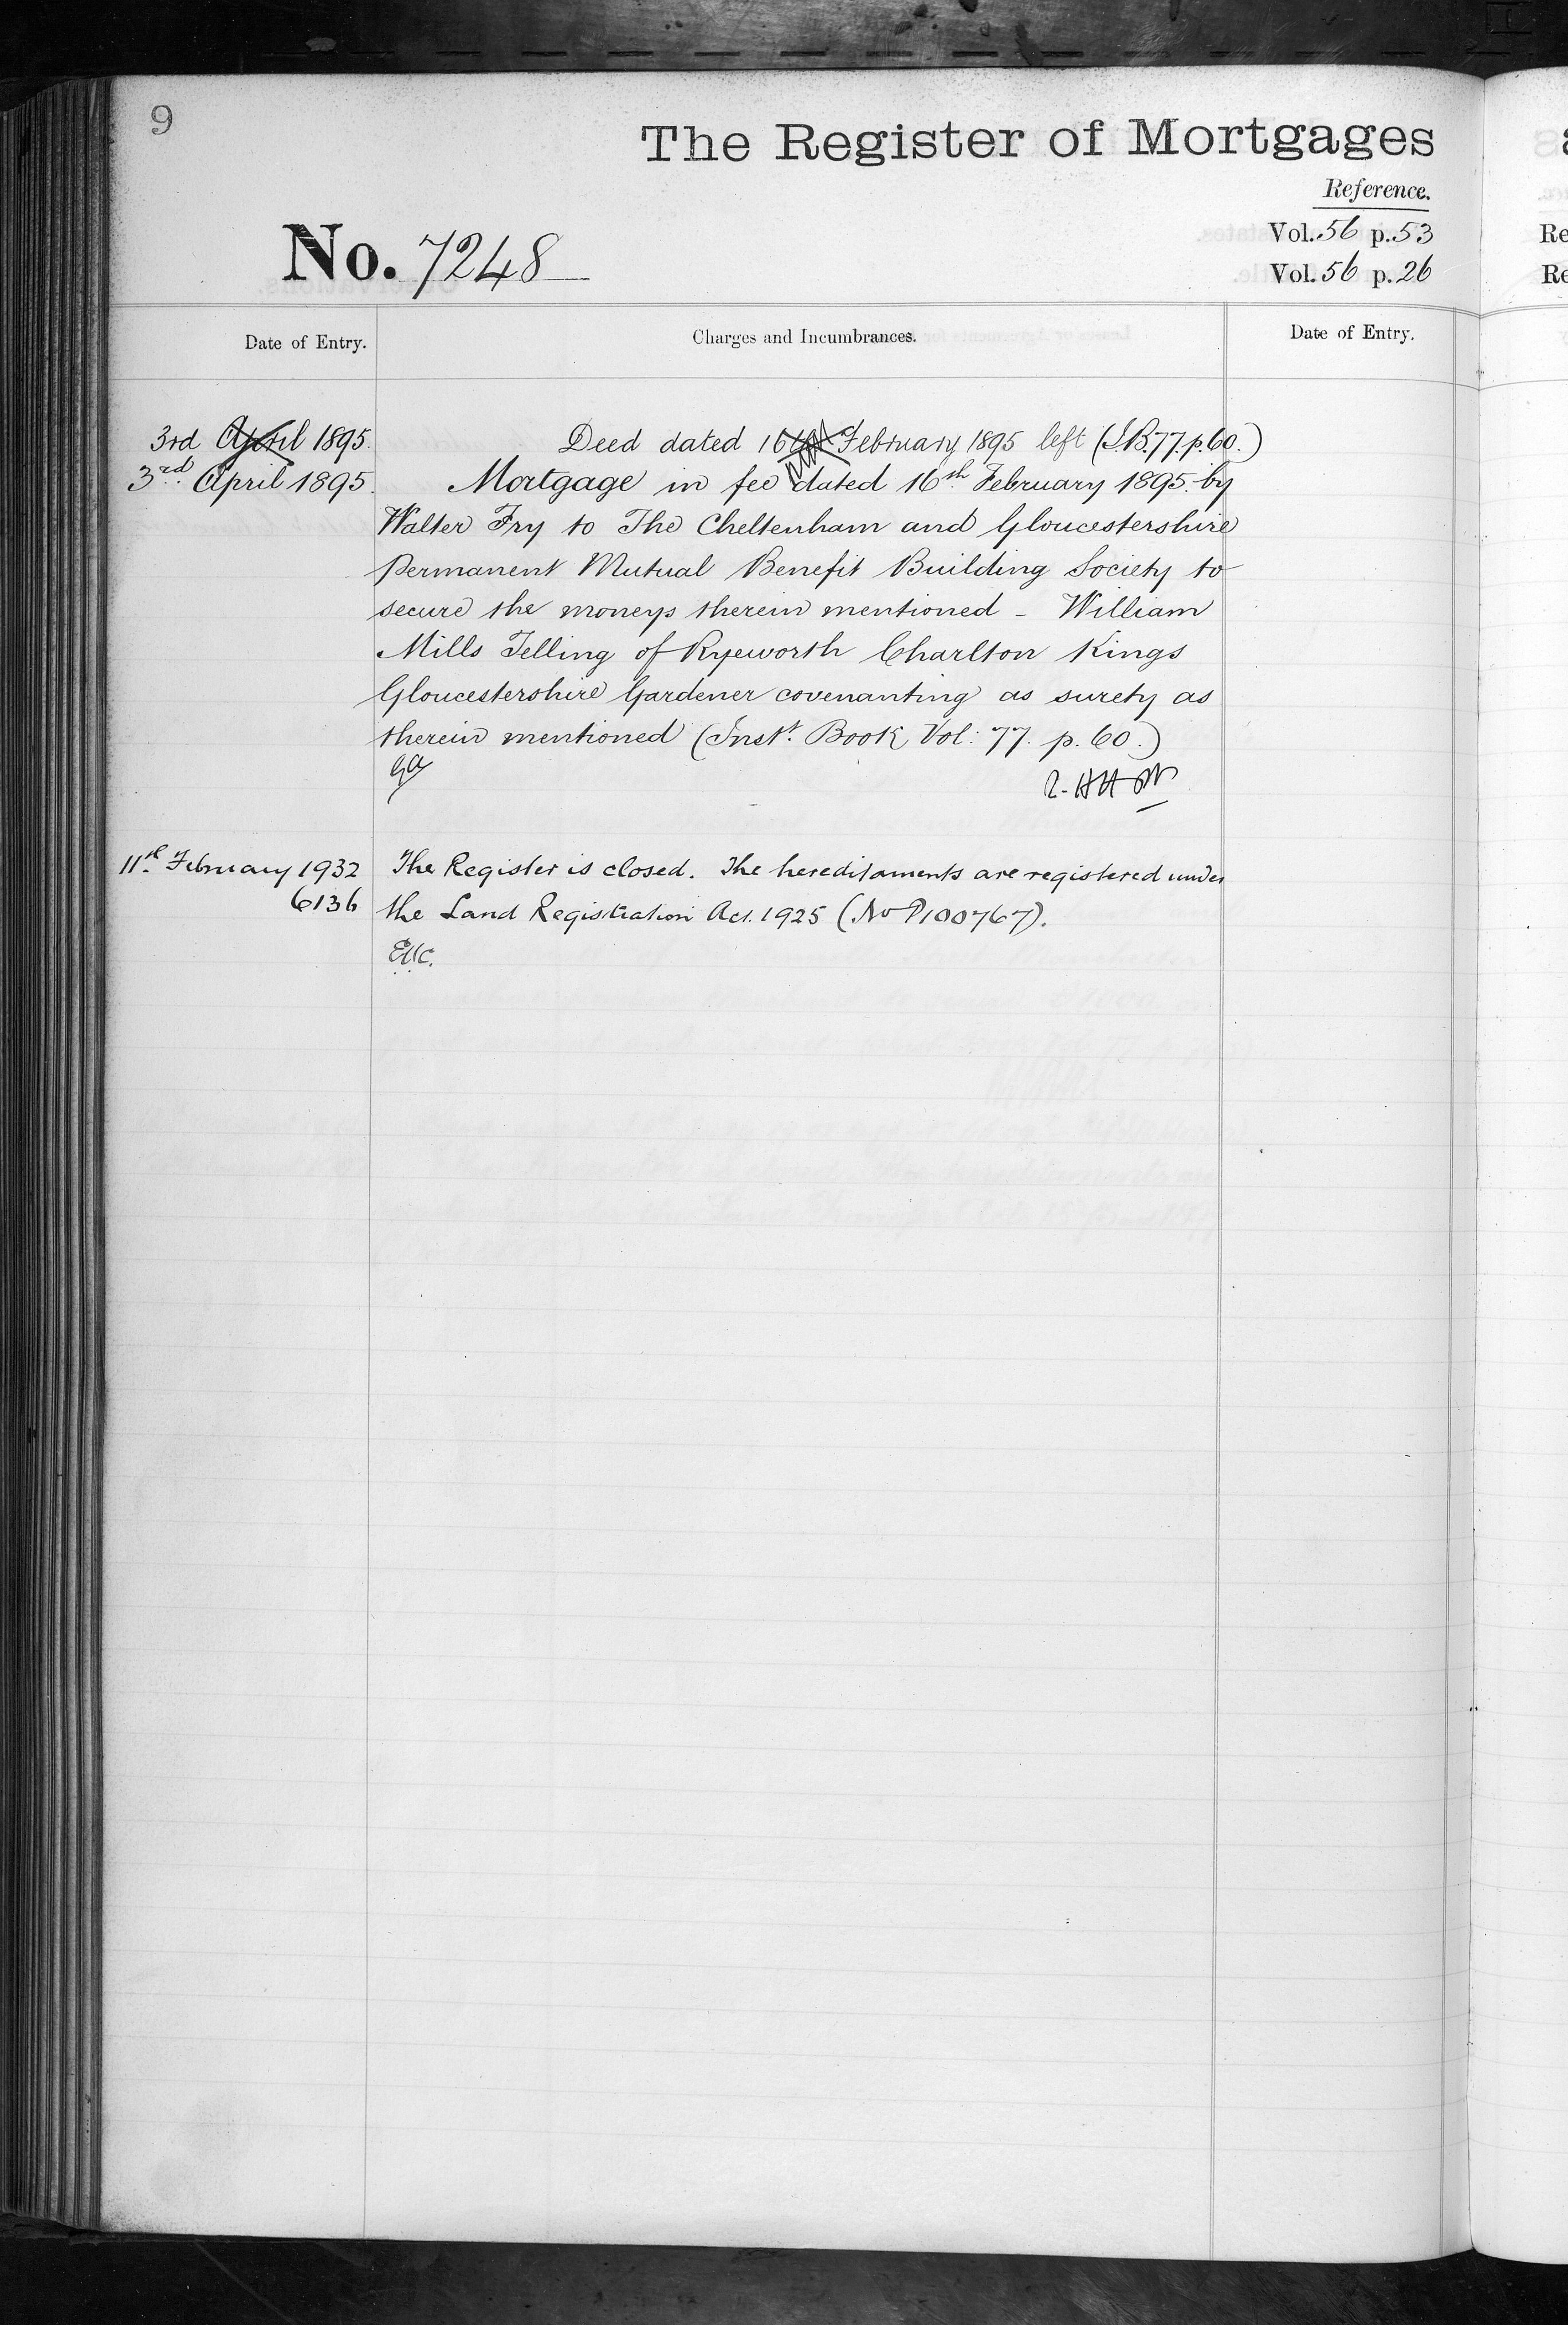 9
The Register of Mortgages
Reference.
No. 7248
Vol. 56 p. 53
Vol. 56 p. 26
Date of Entry.
Charges and Incumbrances.
Date of Entry.
3rd April 1895.
Deed dated 16th February 1895 left (I.B.77.p.60.)
3rd April 1895.
Mortgage in fee dated 16th February 1895. by
Walter Fry to The Cheltenham and Gloucestershire
Permanent Mutual Benefit Building Society to
secure the moneys therein mentioned - William
Mills Telling of Ryeworth Charlton Kings
Gloucestershire Gardener covenanting as surety as
therein mentioned (Inst. Book Vol: 77. p. 60.)
11th February 1932
The Register is closed. The hereditaments are registered under
6136
the Land Registration Act. 1925 (No P100767).
Re
Re